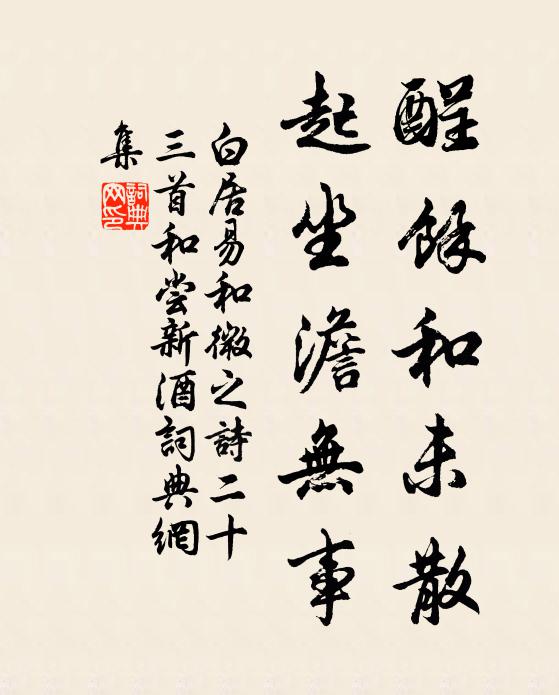 醒餘和未散
起坐澹無事
白居易和微之詩二十
三首和尝新酒詞典網
集
詞典网印